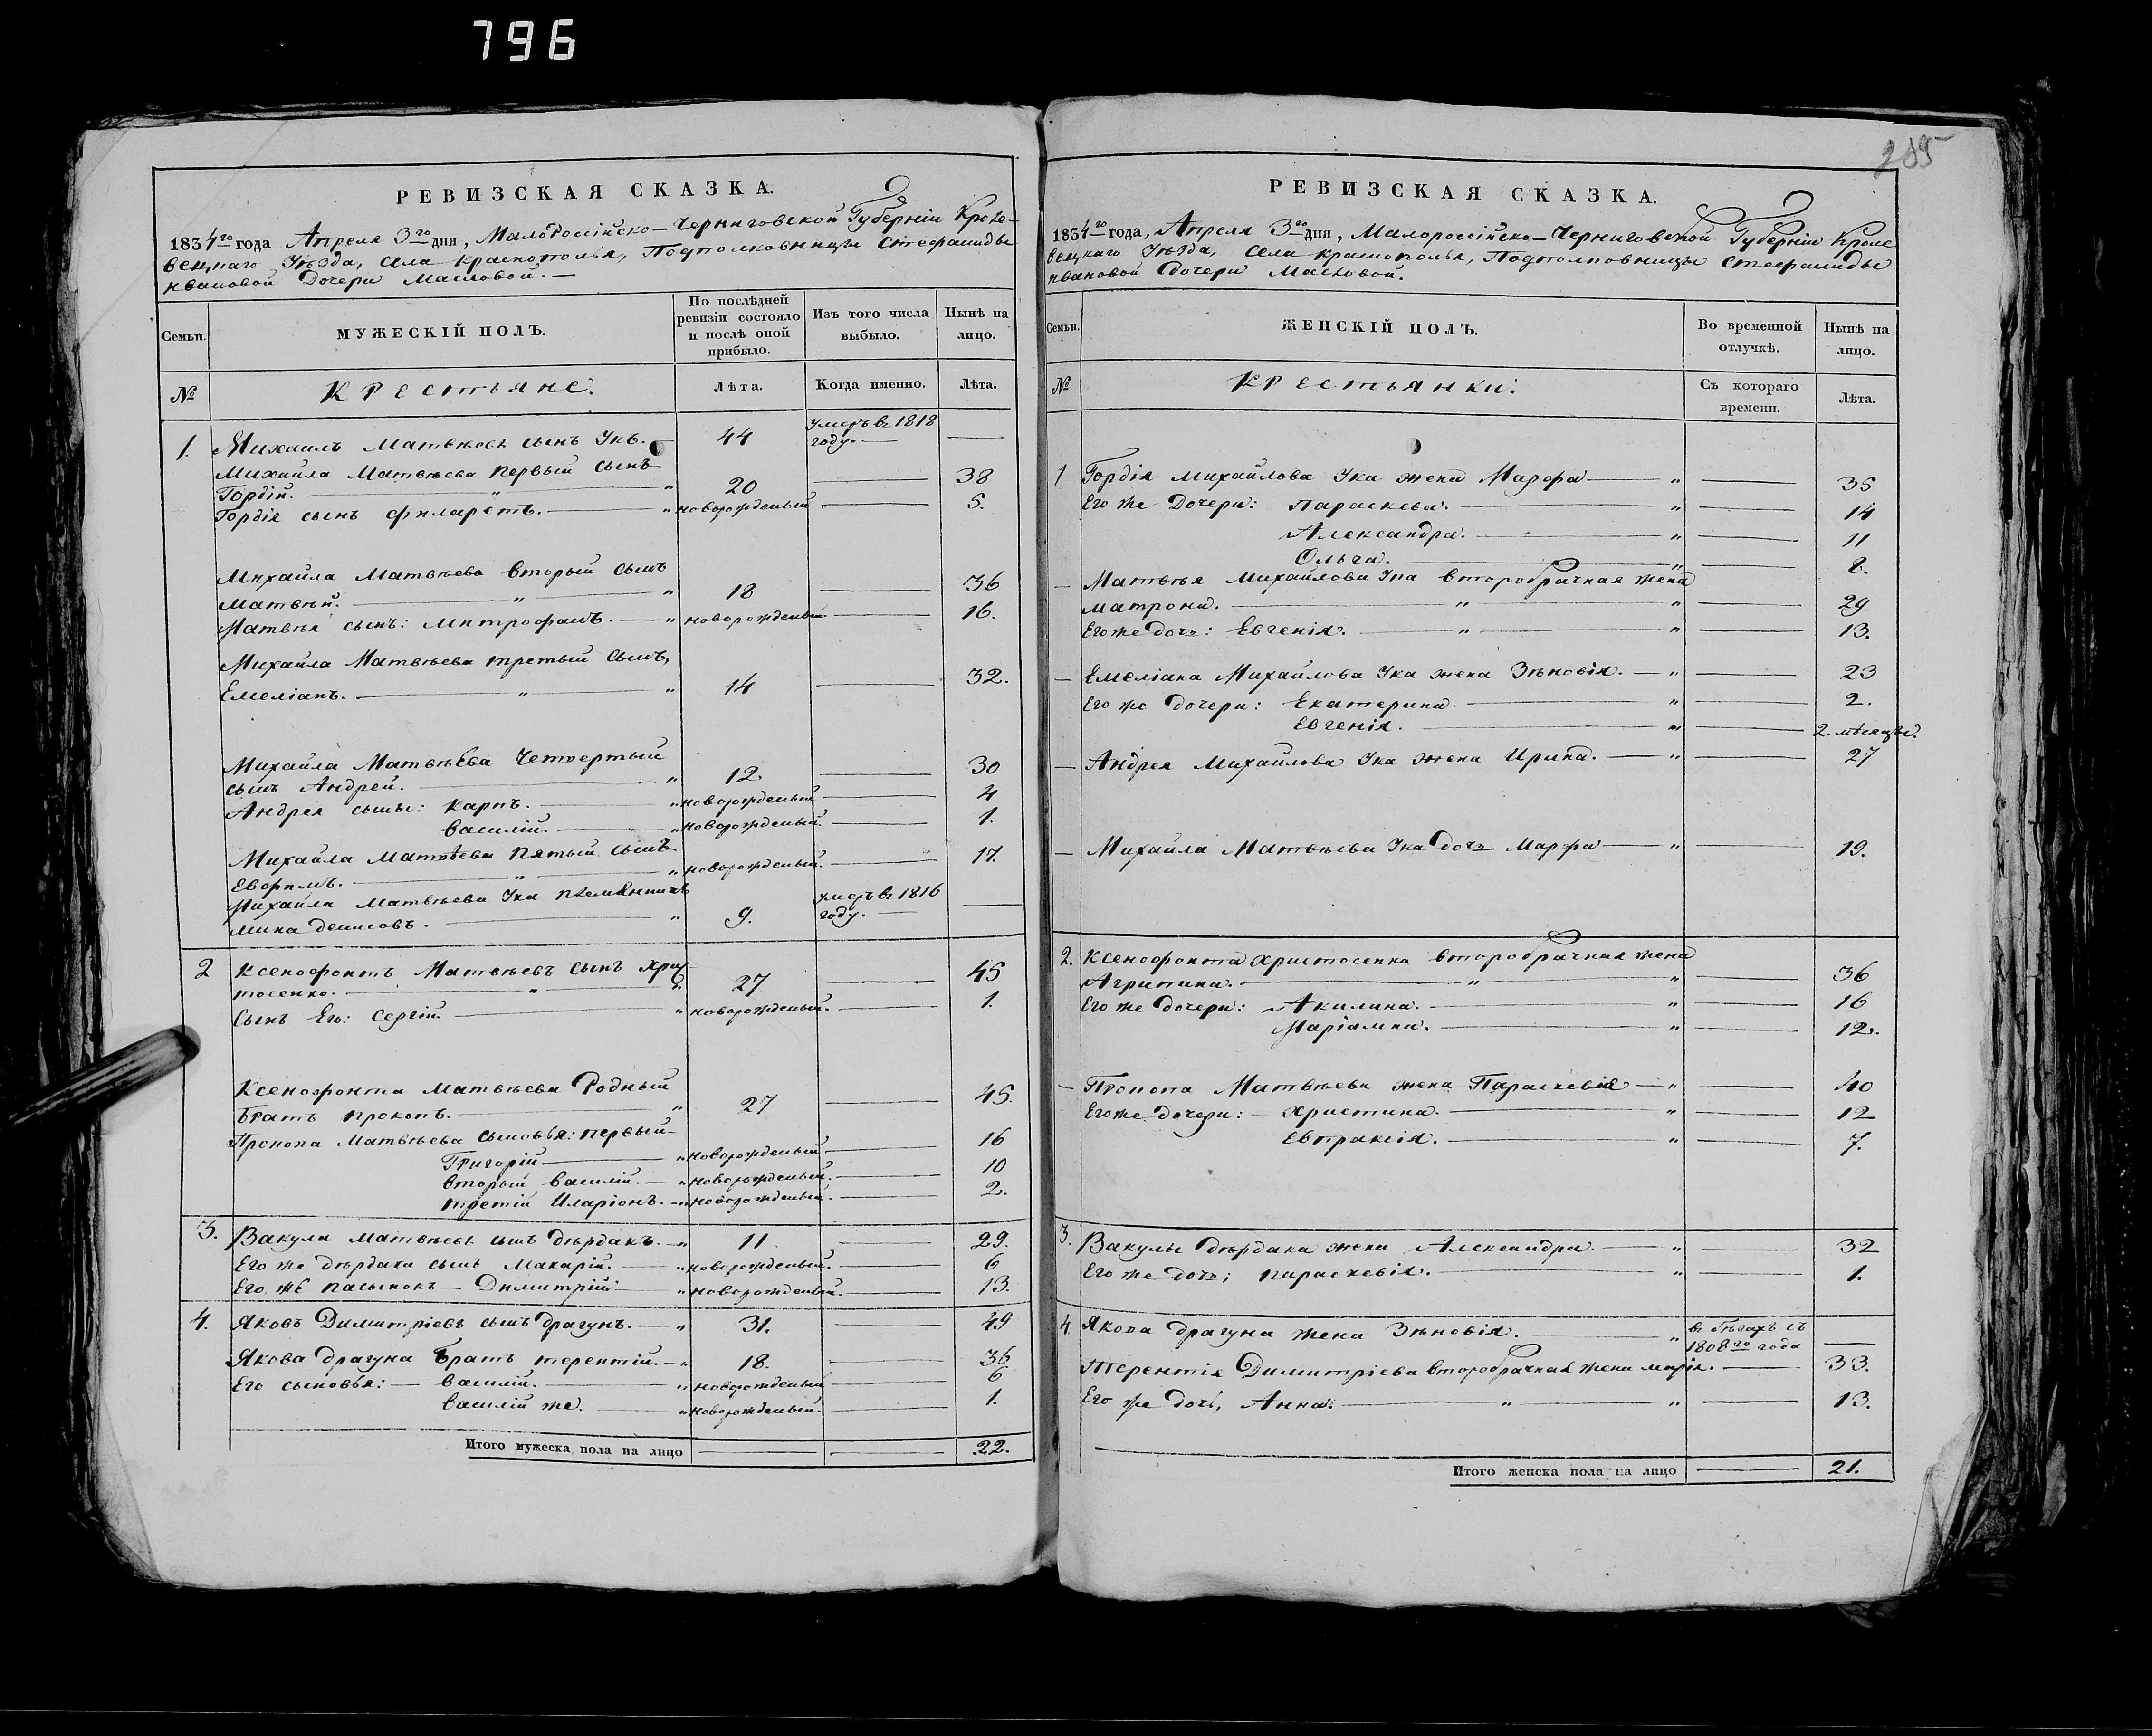 796
205
РЕВИЗСКАЯ СКАЗКА.
1834го года Апреля 3го дня, Малороссійско-Черниговской Губерніи Кроле-
вецкаго Уѣзда, Села Краснополья, Подполковницы Стефаниды
Ивановой Дочери Масловой.
Семьи.
МУЖЕСКІЙ ПОЛЪ.
По послѣдней ревизіи состояло и послѣ оной прибыло.
Изъ того числа выбыло.
Нынѣ на лицо.
№
Крестьяне.
Лѣта.
Когда именно.
Лѣта.
1. Михаилъ Матвѣевъ сынъ Укъ. 44 умеръ въ 1818 году.
Михайла Матвѣева первый сынъ
Гордій. " " 20 38
Гордія сынъ Филаретъ. " новорожденый 5.
Михайла Матвѣева вторый сынъ
Матвѣй. " " 18 36
Матвѣя сынъ: Митрофанъ. " новорожденый 16.
Михайла Матвѣева третый сынъ,
Емеліанъ. " " 14 32.
Михайла Матвѣева Четвертый
сынъ Андрей. " 12. 30
Андрея сыны: Карпъ. " новорожденый 4
Василій. " новорожденый. 1.
Михайла Матвѣева пятый сынъ
Евфимъ. " " новорожденый. 17.
Михайла Матвѣева Ука племянникъ
Мина Денисовъ. " 9. умеръ въ 1816 году.
2 Ксенофонтъ Матвѣевъ сынъ Хрис-
тосенко. " " 27 45
Сынъ Его: Сергій. " новорожденый. 1.
Ксенофонта Матвѣева Родный
Братъ Прокопъ. " 27 45.
Прокопа Матвѣева сыновья: первый
Григорій " новорожденый. 16
вторый Василій. " новорожденый. 10
третій Иларіонъ. " новорожденый. 2.
3. Вакула Матвѣевъ сынъ Дѣрдакъ. " 11 29.
Его же Дѣрдака сынъ Макарій. " новорожденый. 6
Его же пасынокъ Димитрій " новорожденый. 13.
4. Яковъ Димитріевъ сынъ Драгунъ. " 31. 49
Якова Драгуна Братъ Терентій. " 18. 36
Его сыновья: Василій. " новорожденый 6
Василій же. " новорожденый. 1.
Итого мужеска пола на лицо 22.
РЕВИЗСКАЯ СКАЗКА.
1834го года, Апреля 3го дня, Малороссійско-Черниговской Губерніи Кроле
вецкаго Уѣзда, Села Краснополья, Подполковницы Стефаниды
Ивановой Дочери Масловой.
Семьи.
ЖЕНСКІЙ ПОЛЪ.
Во временной отлучкѣ.
Нынѣ на лицо.
№
Крестьянки.
Съ котораго времени.
Лѣта.
1 Гордія Михайлова Ука жена Марфа " 35
Его же Дочери: Параскева. " 14
Александра. " 11
Ольга. " 8.
Матвѣя Михайлова Ука второбрачная жена
Матрона. " " 29
Его же дочь: Евгенія. " " 13.
Емеліана Михайлова Ука жена Зѣновія. " 23
Его же дочери: Екатерина. " 2.
Евгенія. " 2. мѣсяцы.
Андрея Михайлова Ука жена Ирина. " 27
Михайла Матвѣева Ука дочь Марфа " 19.
2. Ксенофонта Христосенка второбрачная жена
Агрипина. " " 36
Его же дочери: Акилина. " 16
Маріамна. " 12.
Прокопа Матвѣева жена Параскевія " 40
Его же дочери: Христина. " 12
Евпраксія. " 7.
3. Вакулы Дѣрдака жена Александра. " 32
Его же дочь; Параскевія. " 1.
4. Якова Драгуна жена Зѣновія. " въ бѣгахъ съ 1808го года
Терентія Димитріева второбрачная жена Марія. 33.
Его же дочь, Анна: " " 13.
Итого женска пола на лицо 21.